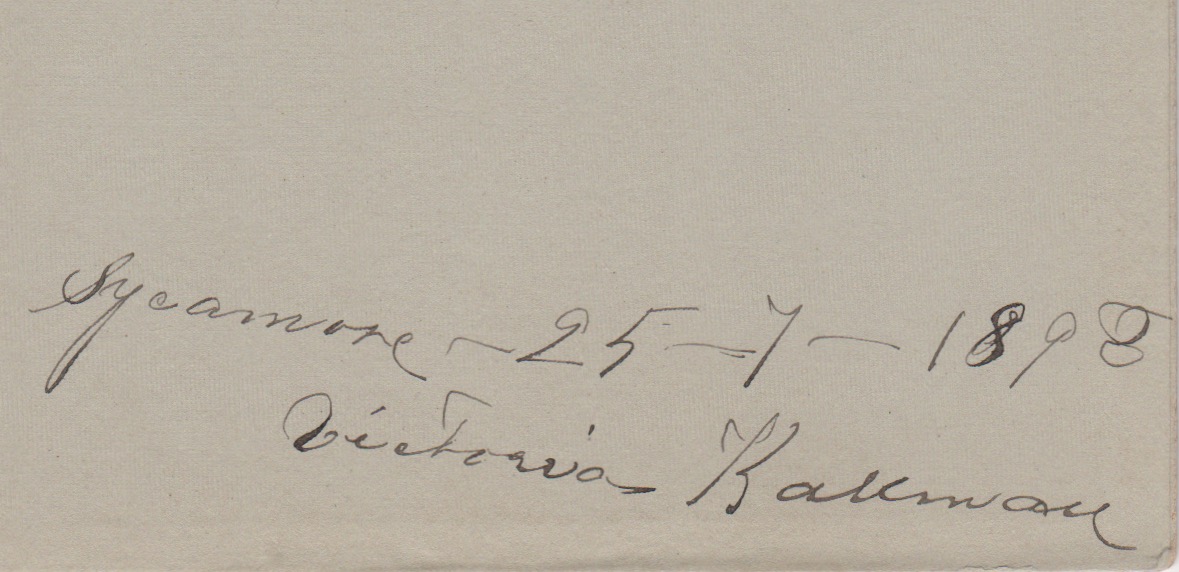 Sycamore - 25 - 7 - 1898
Victoria Kallman